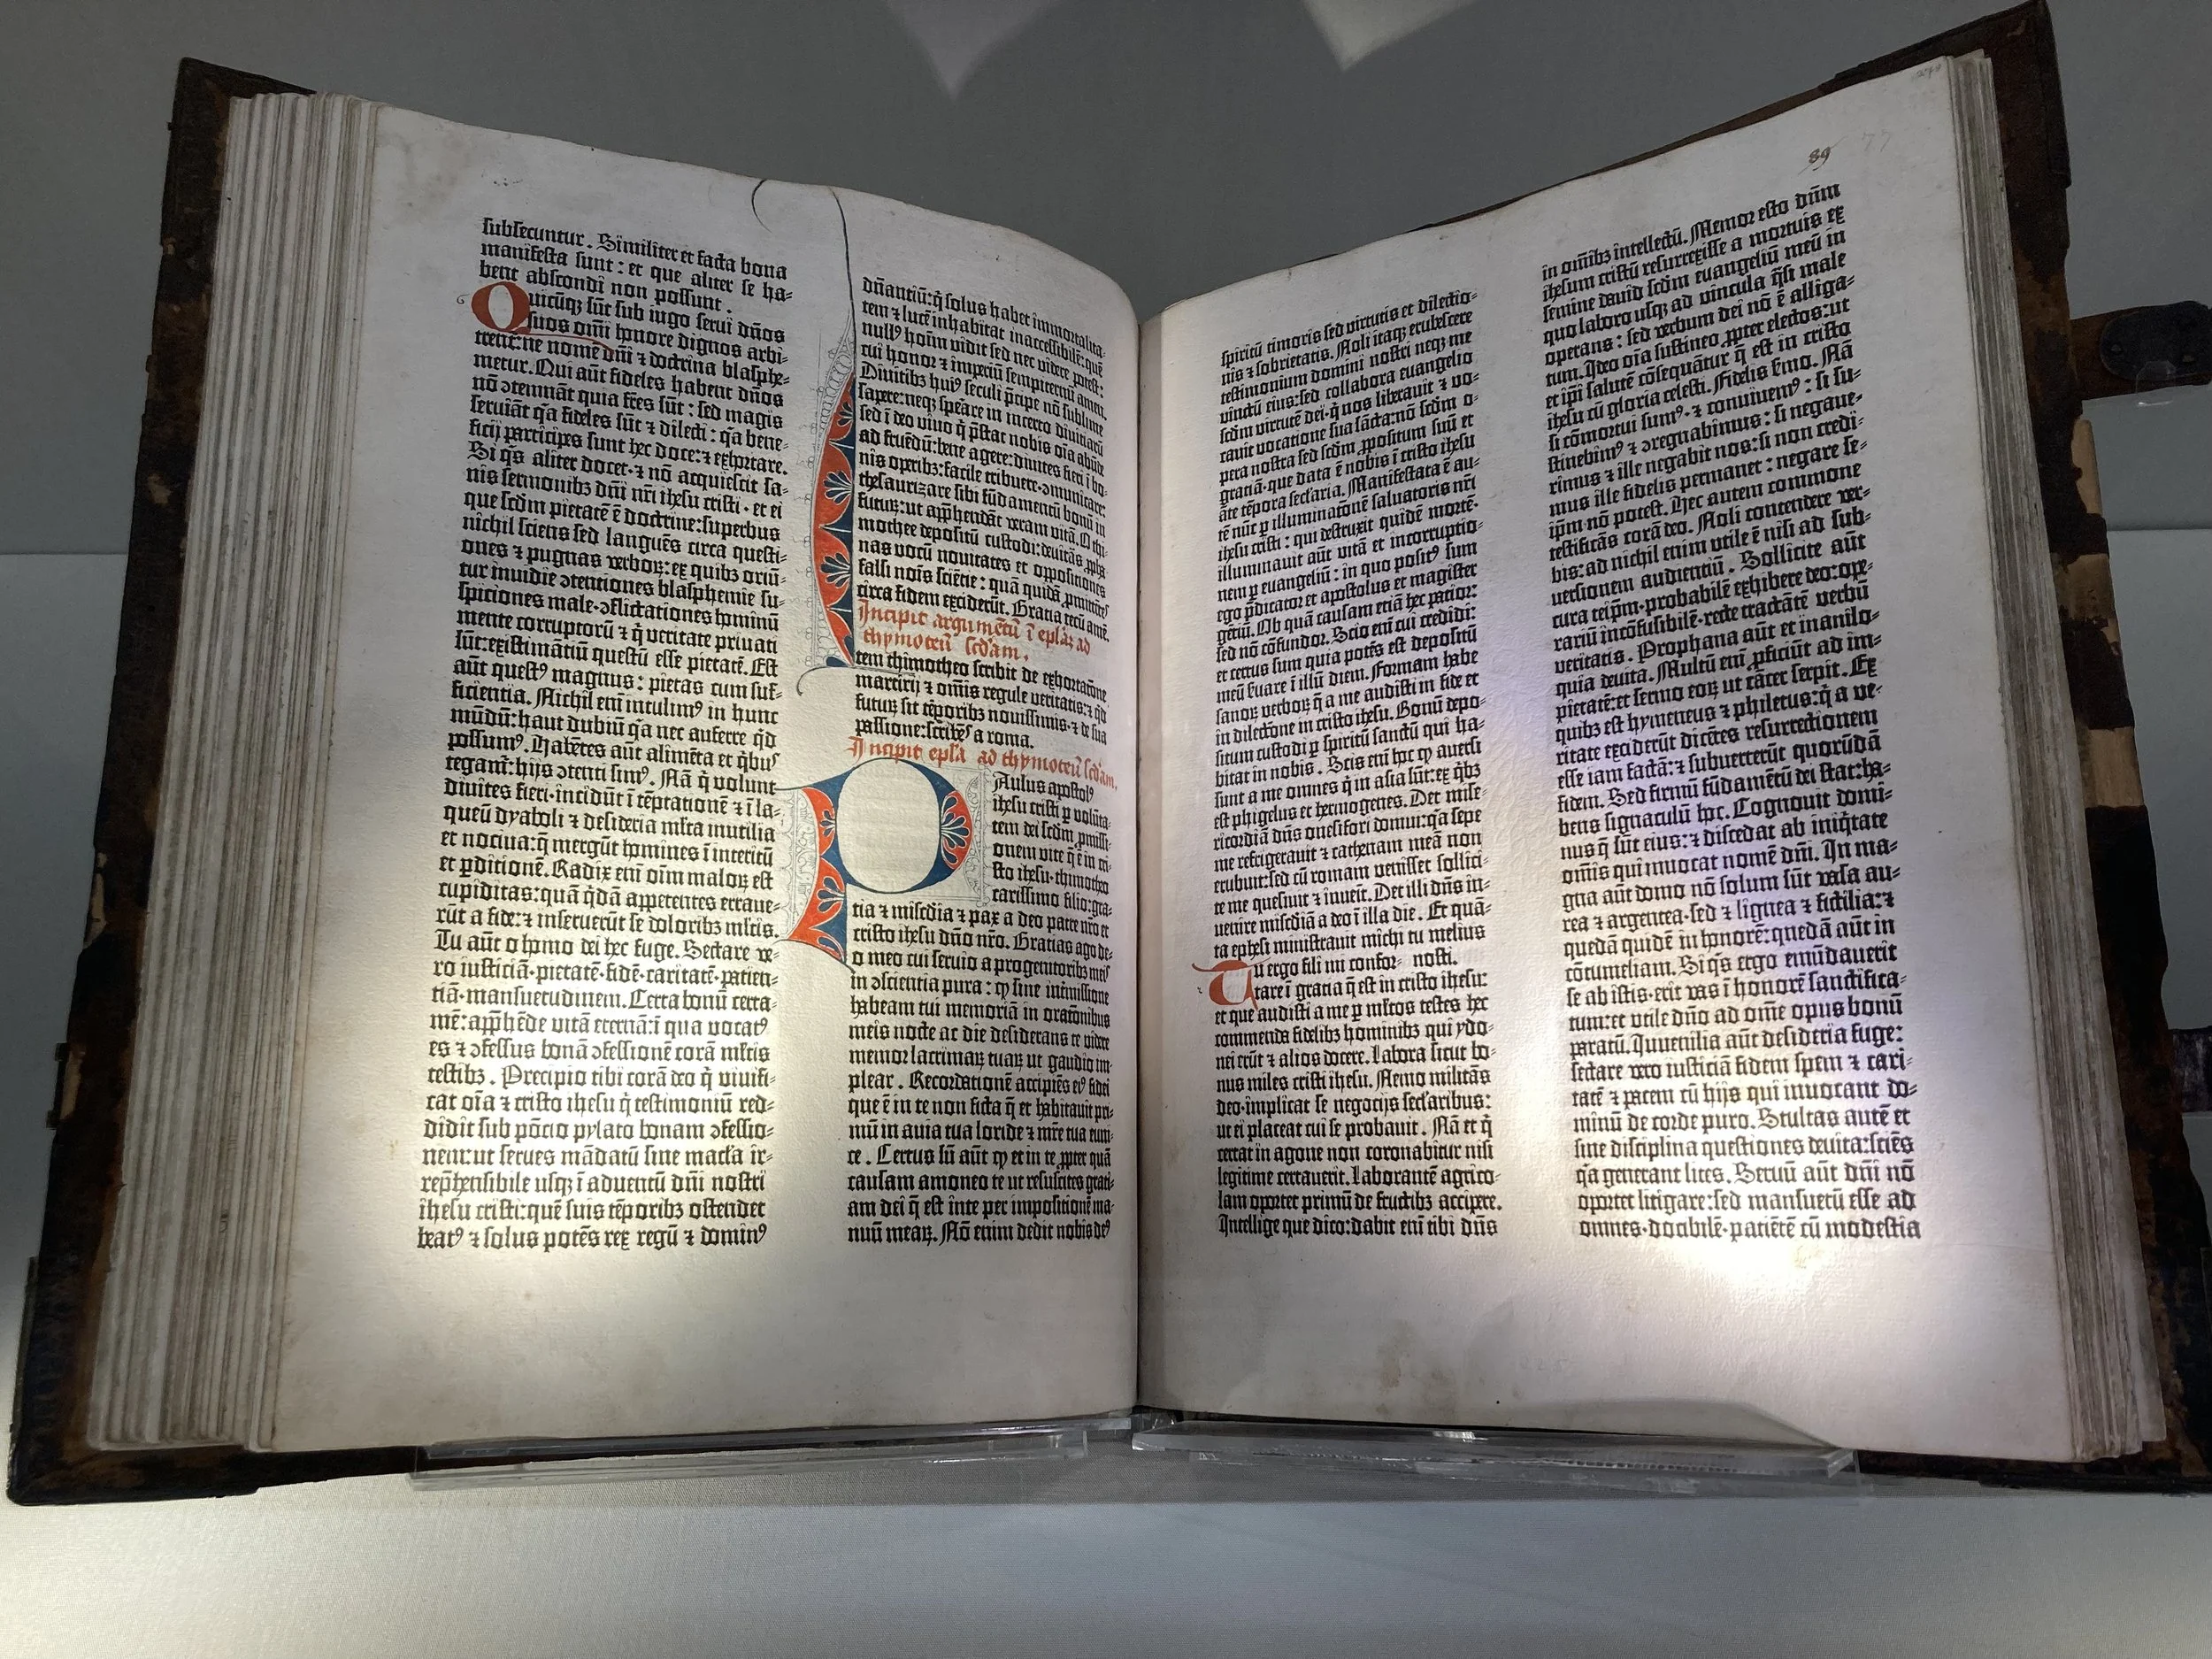 subsecuntur. Similiter et facta bona
manifesta sunt: et que aliter se ha-
bent abscondi non possunt.
Quicūqꝫ sūt sub iugo serui dn̄os
suos om̄i honore dignos arbi-
trent̄: ne nomē dn̄i ⁊ doctrina blasphe-
metur. Qui aūt fideles habent dn̄os
nō ꝯtemnāt quia fr̄es sūt: sed magis
seruiāt q̄a fideles sūt ⁊ dilecti: q̄a bene-
ficij participes sunt hec doce: ⁊ exhortare.
Si q̄s aliter docet· ⁊ nō acquiescit sa-
nis sermonibꝫ dn̄i nr̄i ihesu cristi· et ei
que scd̄m pietatē ē doctrine: superbus
nichil sciens sed languēs circa questi-
ones ⁊ pugnas verboꝝ: ex quibꝫ oriū-
tur inuidie ꝯtentiones blasphemie su-
spiciones male· ꝯflictationes hominū
mente corruptorū ⁊ q̄ veritate priuati
sūt: existimātiū questū esse pietatē. Est
aūt questꝰ magnus: pietas cum suf-
ficientia. Nichil em̄ intulimꝰ in hunc
mūdū: haut dubiū q̄a nec auferre q̄d
possumꝰ. Habētes aūt alimēta et q̄bus
tegam̄: hijs ꝯtenti simꝰ. Nā q̄ volunt
diuites fieri· incidūt ī tēptationē ⁊ ī la-
queū dyaboli ⁊ desideria ml̄ta inutilia
et nociua: q̄ mergūt homines ī interitū
et ꝑditionē. Radix em̄ oīm maloꝝ est
cupiditas: quā q̄dā appetentes erraue-
rūt a fide: ⁊ inseruerūt se doloribꝫ ml̄tis.
Tu aūt o homo dei hec fuge. Sectare ve-
ro iusticiā· pietatē· fidē· caritatē· patien-
tiā· mansuetudinem. Certa bonū certa-
mē: app̄hēde vitā eternā: ī qua vocatꝰ
es ⁊ ꝯfessus bonā ꝯfessionē corā ml̄tis
testibꝫ. Precipio tibi corā deo q̄ viuifi-
cat oīa ⁊ cristo ihesu q̄ testimoniū red-
didit sub pōcio pylato bonam ꝯfessio-
nem: ut serues mādatū sine macl̄a ir-
rep̄hensibile usqꝫ ī aduentū dn̄i nostri
ihesu cristi: quē suis tēporibꝫ ostendet
beatꝰ ⁊ solus potēs rex regū ⁊ dominꝰ
dn̄antiū: q̄ solus habet immortalita-
tem ⁊ lucē inhabitat inaccessibilē: quē
nullꝰ hoīm vidit sed nec videre potest:
cui honor ⁊ imperiū sempiternū amen.
Diuitibꝫ huiꝰ seculi p̄cipe nō sublime
sapere: neqꝫ sperare in incerto diuitiarū
sed ī deo viuo q̄ p̄stat nobis oīa abūte
ad fruēdū: bene agere: diuites fieri ī bo-
nis operibꝫ: facile tribuere· ꝯmunicare:
thesaurizare sibi fūdamentū bonū in
futurꝫ: ut app̄hendāt veram vitā. O thi-
mothee depositū custodi: deuitās ꝓpha-
nas vocū nouitates et oppositiones
falsi nois sciētie: quā quidā ꝓmittētes
circa fidem exciderūt. Gratia tecū amē.
Incipit argumētū ī epl̄aꝫ ad
thymoteū scd̄am.
Item thimotheo scribit de exhortatōne
martirij ⁊ om̄is regule veritatis: ⁊ q̄d
futurꝫ sit tēporibꝫ nouissimis· ⁊ de sua
passione: scribēs a roma.
Incipit epl̄a ad thymoteū scd̄am.
Paulus apostolꝰ
ihesu cristi ꝑ volūta-
tem dei scd̄m ꝓmissi-
onem vite q̄ ē in cri-
sto ihesu· thimotheo
carissimo filio: gra-
tia ⁊ mis̄cdia ⁊ pax a deo patre nr̄o et
cristo ihesu dn̄o nr̄o. Gratias ago de-
o meo cui seruio a progenitoribꝫ meis
in ꝯscientia pura: ꝙ sine int̄missione
habeam tui memoriā in orat̄onibus
meis nocte ac die desiderans te videre
memor lacrimaꝝ tuaꝝ ut gaudio im-
plear. Recordationē accipiēs eiꝰ fidei
que ē in te non ficta q̄ et habitauit pri-
mū in auia tua loride ⁊ mr̄e tua euni-
ce. Certus sū aūt ꝙ et in te ꝓpter quā
causam amoneo te ut resuscites grati-
am dei q̄ est in te per impositionē ma-
nuū meaꝝ. Nō enim dedit nobis deꝰ
89
77
spiritū timoris sed virtutis et dilectio-
nis ⁊ sobrietatis. Noli itaqꝫ erubescere
testimonium domini nostri neqꝫ me
vinctū eius: sed collabora euangelio
scd̄m virtutē dei· q̄ nos liberauit ⁊ vo-
cauit vocatione sua sācta: nō scd̄m o-
pera nostra sed scd̄m ꝓpositum suū et
gratiā· que data ē nobis ī cristo ihesu
āte tēpora secl̄aria. Manifestata ē au-
tē nūc ꝑ illuminatōnē saluatoris nr̄i
ihesu cristi: qui destruxit quidē mortē·
illuminauit aūt vitā et incorruptio-
nem ꝑ euangeliū: in quo positꝰ sum
ego p̄dicator et apostolus et magister
gētiū. Ob quā causam etiā hec patior:
sed nō cōfundor. Scio em̄ cui credidi:
et certus sum quia potēs est depositū
meū s̄uare ī illū diem. Formam habe
sanoꝝ verboꝝ q̄ a me audisti in fide et
in dilectōne in cristo ihesu. Bonū depo-
situm custodi ꝑ spiritū sanctū qui ha-
bitat in nobis. Scis em̄ hoc ꝙ auersi
sunt a me omnes q̄ in asia sūt: ex q̄bꝫ
est phigelus et hermogenes. Det mise-
ricordiā dn̄s onesifori domui: q̄a sepe
me refrigerauit ⁊ cathenam meā non
erubuit: sed cū romam venisset sollici-
te me quesiuit ⁊ inuenit. Det illi dn̄s in-
uenire misc̄diā a deo ī illa die. Et quā-
ta ephesi ministrauit michi tu melius
nosti.
Tu ergo fili mi confor-
tare ī gratia q̄ est in cristo ihesu:
et que audisti a me ꝑ ml̄tos testes hec
commenda fidelibꝫ hominibꝫ qui ydo-
nei erūt ⁊ alios docere. Labora sicut bo-
nus miles cristi ihesu. Nemo militās
deo· implicat se negocijs secl̄aribus:
ut ei placeat cui se probauit. Nā et q̄
certat in agone non coronabitur nisi
legitime certauerit. Laborantē agrico-
lam oportet primū de fructibꝫ accipere.
Intellige que dico: dabit em̄ tibi dn̄s
in om̄ibꝫ intellectū. Memor esto dn̄m
ihesum cristū resurrexisse a mortuis ex
semine dauid scd̄m euangeliū meū in
quo laboro usqꝫ ad vincula q̄si male
operans: sed verbum dei nō ē alliga-
tum. Ideo oīa sustineo ꝓpter electos: ut
et ip̄i salutē cōsequātur q̄ est in cristo
ihesu cū gloria celesti. Fidelis s̄mo. Nā
si cōmortui sumꝰ· ⁊ conuiuemꝰ: si su-
stinebimꝰ ⁊ ꝯregnabimus: si negaue-
rimus ⁊ ille negabit nos: si non credi-
mus ille fidelis permanet: negare se-
ip̄m nō potest. Hec autem commone
testificās corā deo. Noli contendere ver-
bis: ad nichil enim utile ē nisi ad sub-
versionem audientiū. Sollicite aūt
cura teip̄m· probabilē exhibere deo: ope-
rariū incōfusibilē· recte tractātē verbū
veritatis. Prophana aūt et inanilo-
quia deuita. Multū em̄ ꝓficiūt ad im-
pietatē: et sermo eoꝝ ut cācer serpit. Ex
quibꝫ est hymeneus ⁊ philetus: q̄ a ve-
ritate exciderūt dicētes resurrectionem
esse iam factā: ⁊ subuerterūt quorūdā
fidem. Sed firmū fūdamētū dei stat: ha-
bens signaculū hoc. Cognouit domi-
nus q̄ sūt eius: ⁊ discedat ab iniq̄tate
om̄is qui inuocat nomē dn̄i. In ma-
gna aūt domo nō solum sūt vasa au-
rea ⁊ argentea· sed ⁊ lignea ⁊ fictilia: ⁊
quedā quidē in honorē: quedā aūt in
cōtumeliam. Si q̄s ergo emūdauerit
se ab istis· erit vas ī honorē sanctifica-
tum: et utile dn̄o ad om̄e opus bonū
paratū. Iuuenilia aūt desideria fuge:
sectare vero iusticiā fidem spem ⁊ cari-
tatē ⁊ pacem cū hijs qui inuocant do-
minū de corde puro. Stultas autē et
sine disciplina questiones deuita: sciēs
q̄a generant lites. Seruū aūt dn̄i nō
oportet litigare: sed mansuetū esse ad
omnes· docibilē· patiētē cū modestia